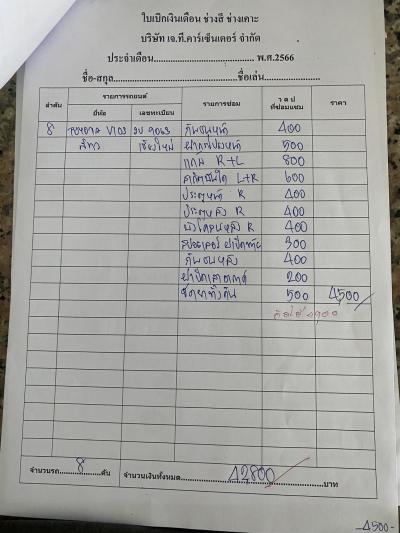 ใบเบิกเงินเดือน ช่างสี ช่างเคาะ
บริษัท เจ.ที.คาร์เซ็นเตอร์ จำกัด
ประจำเดือน........................................ พ.ศ.2566
ชื่อ-สกุล........................................ชื่อเล่น....................
ลำดับ รายการรถยนต์ รายการซ่อม ว ด ป ที่ซ่อมแซม ราคา
ยี่ห้อ เลขทะเบียน
8 TOYOTA VIOS 9063 กันชนหน้า 400
สีเทา เชียงใหม่ ฝากระโปรงหน้า 500
แก้ม R+L 800
L+R 600
ประตูหน้า R 400
ประตูหลัง R 400
บังโคลนหลัง R 400
สปอยเลอร์ ฝาปิดท้าย 300
กันชนหลัง 400
200
500 4500
จำนวนรถ.......8.......คัน จำนวนเงินทั้งหมด..........42800..........บาท
4500-